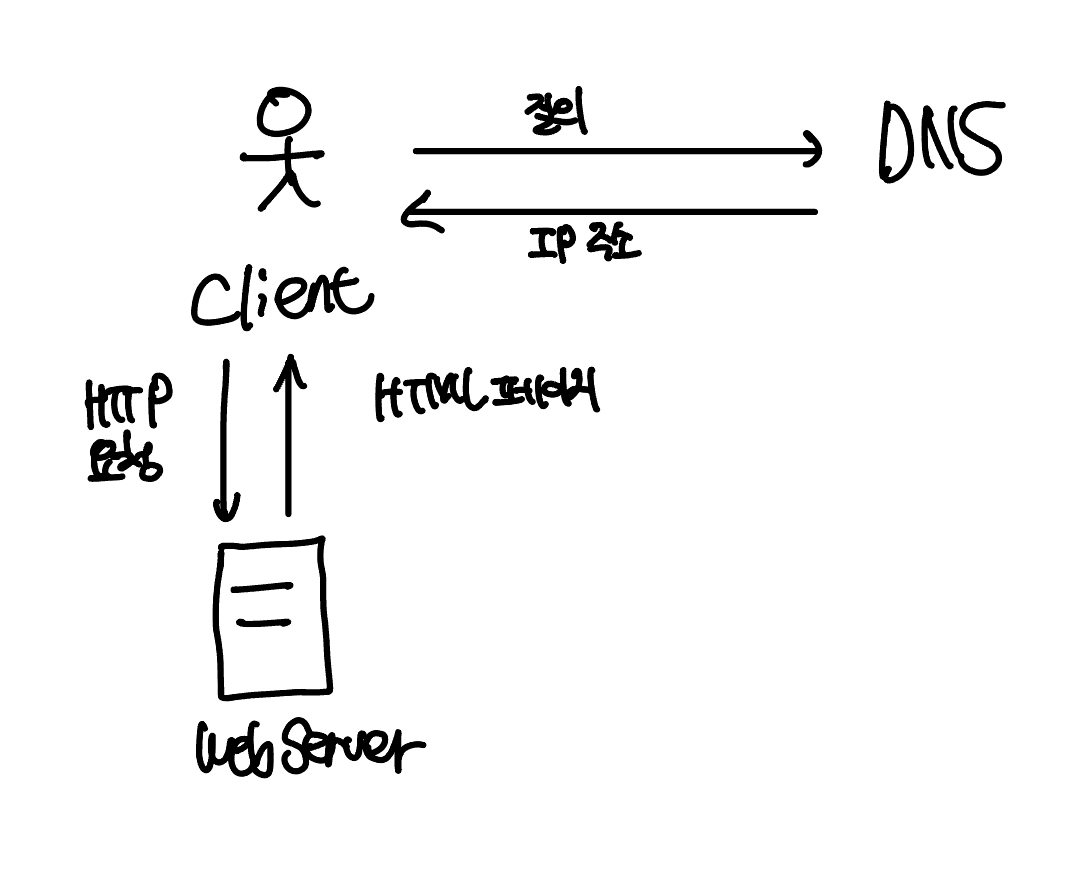 질의
DNS
IP 주소
Client
HTTP
요청
HTML 페이지
Web Server